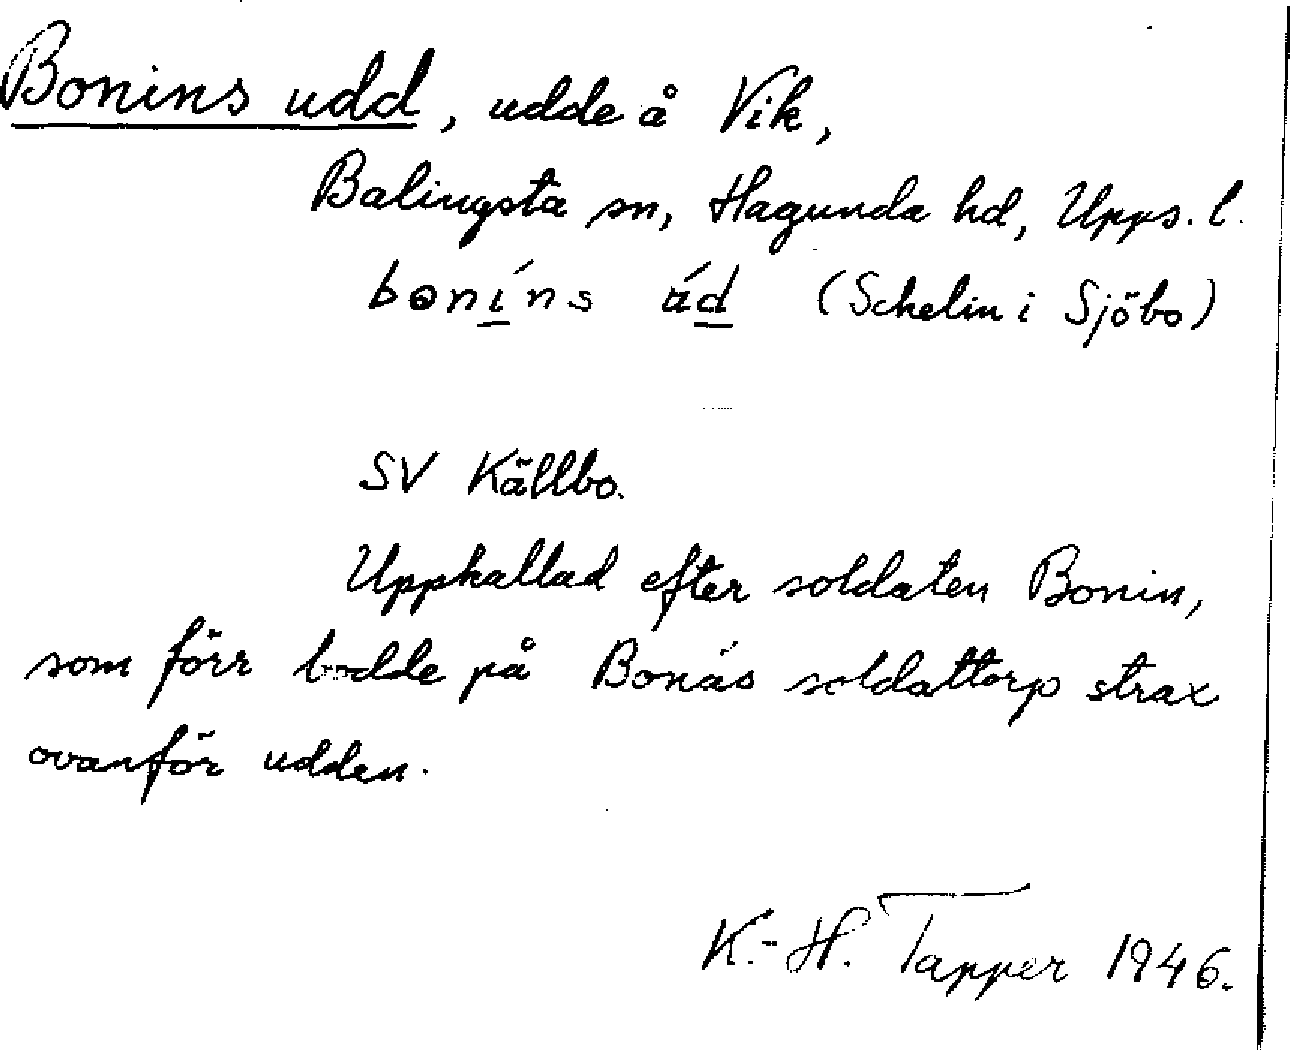 Bonins udd, udde å Vik,
Balingsta sn, Hagunda hd, Upps. l.
boníns úd (Schelin i Sjöbo)
SV Källbo.
Uppkallad efter soldaten Bonin,
som förr bodde på Bonäs soldattorp strax
ovanför udden.
K.-H. Tapper 1946.